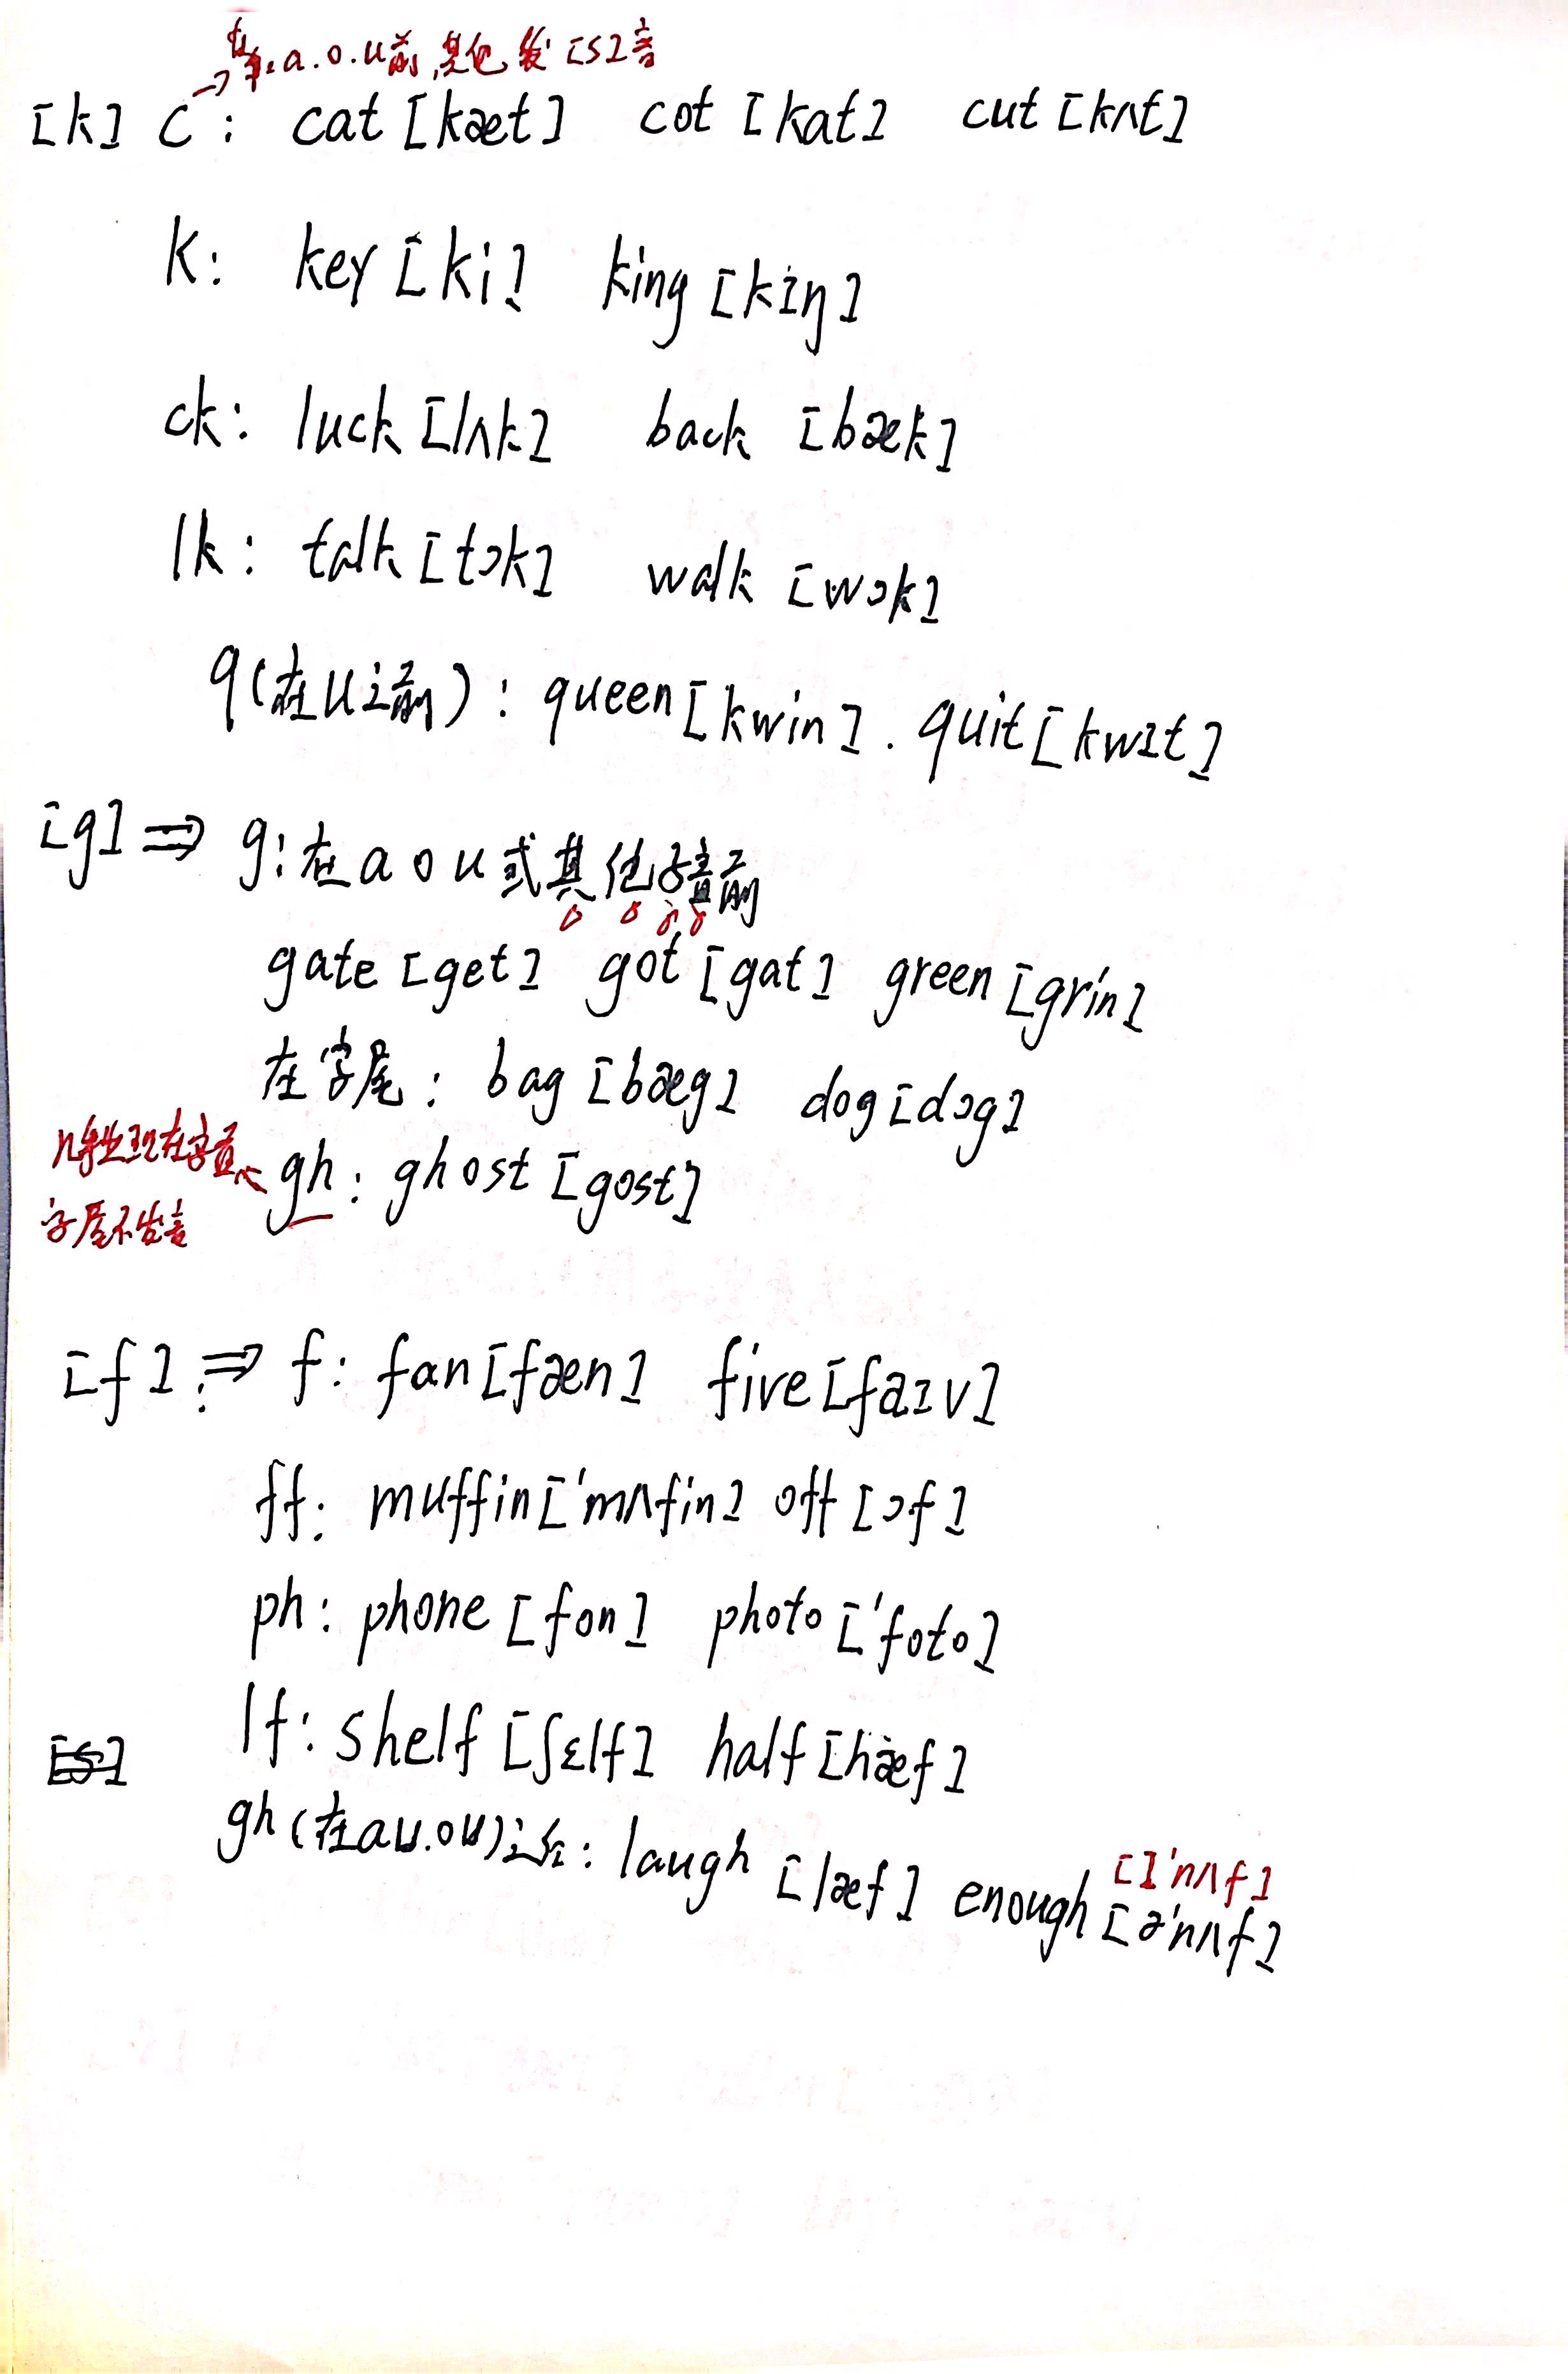 在 a.o.u前,其他发[s]音
[k] c: cat [kæt] cot [kat] cut [kʌt]
k: key [ki] king [kɪŋ]
ck: luck [lʌk] back [bæk]
lk: talk [tɔk] walk [wɔk]
q(在u之前): queen [kwin]. quit [kwɪt]
[g] ⇒ g: 在 a o u 或其他子音前
gate [get] got [gat] green [grin]
在字尾: bag [bæg] dog [dɔg]
字尾不发音
gh: ghost [gost]
[f] ⇒ f: fan [fæn] five [faɪv]
ff: muffin ['mʌfin] off [ɔf]
ph: phone [fon] photo ['foto]
lf: shelf [ʃɛlf] half [hæf]
gh (在au.ou)之后: laugh [læf] enough [ə'nʌf]
[ɪ'nʌf]